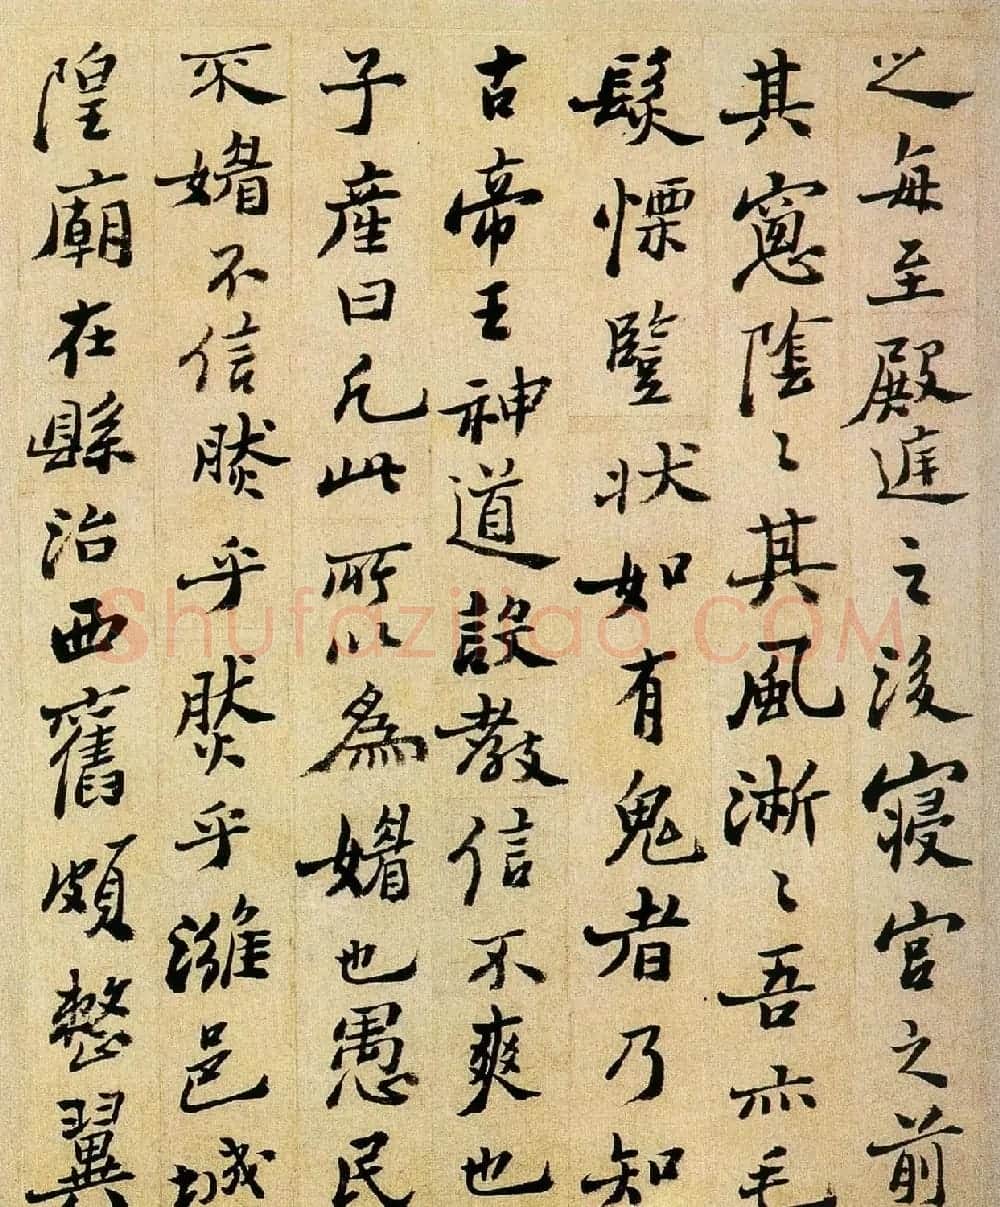 之每至殿庭之後寢宮之前
其窻陰〻其風淅〻吾亦毛
髮慄豎狀如有鬼者乃知
古帝王神道設教信不爽也
子產曰凡此所以為媚也愚民
不媚不信然乎然乎濰邑城
隍廟在縣治西舊頗整翼
Shufaziliao.COM